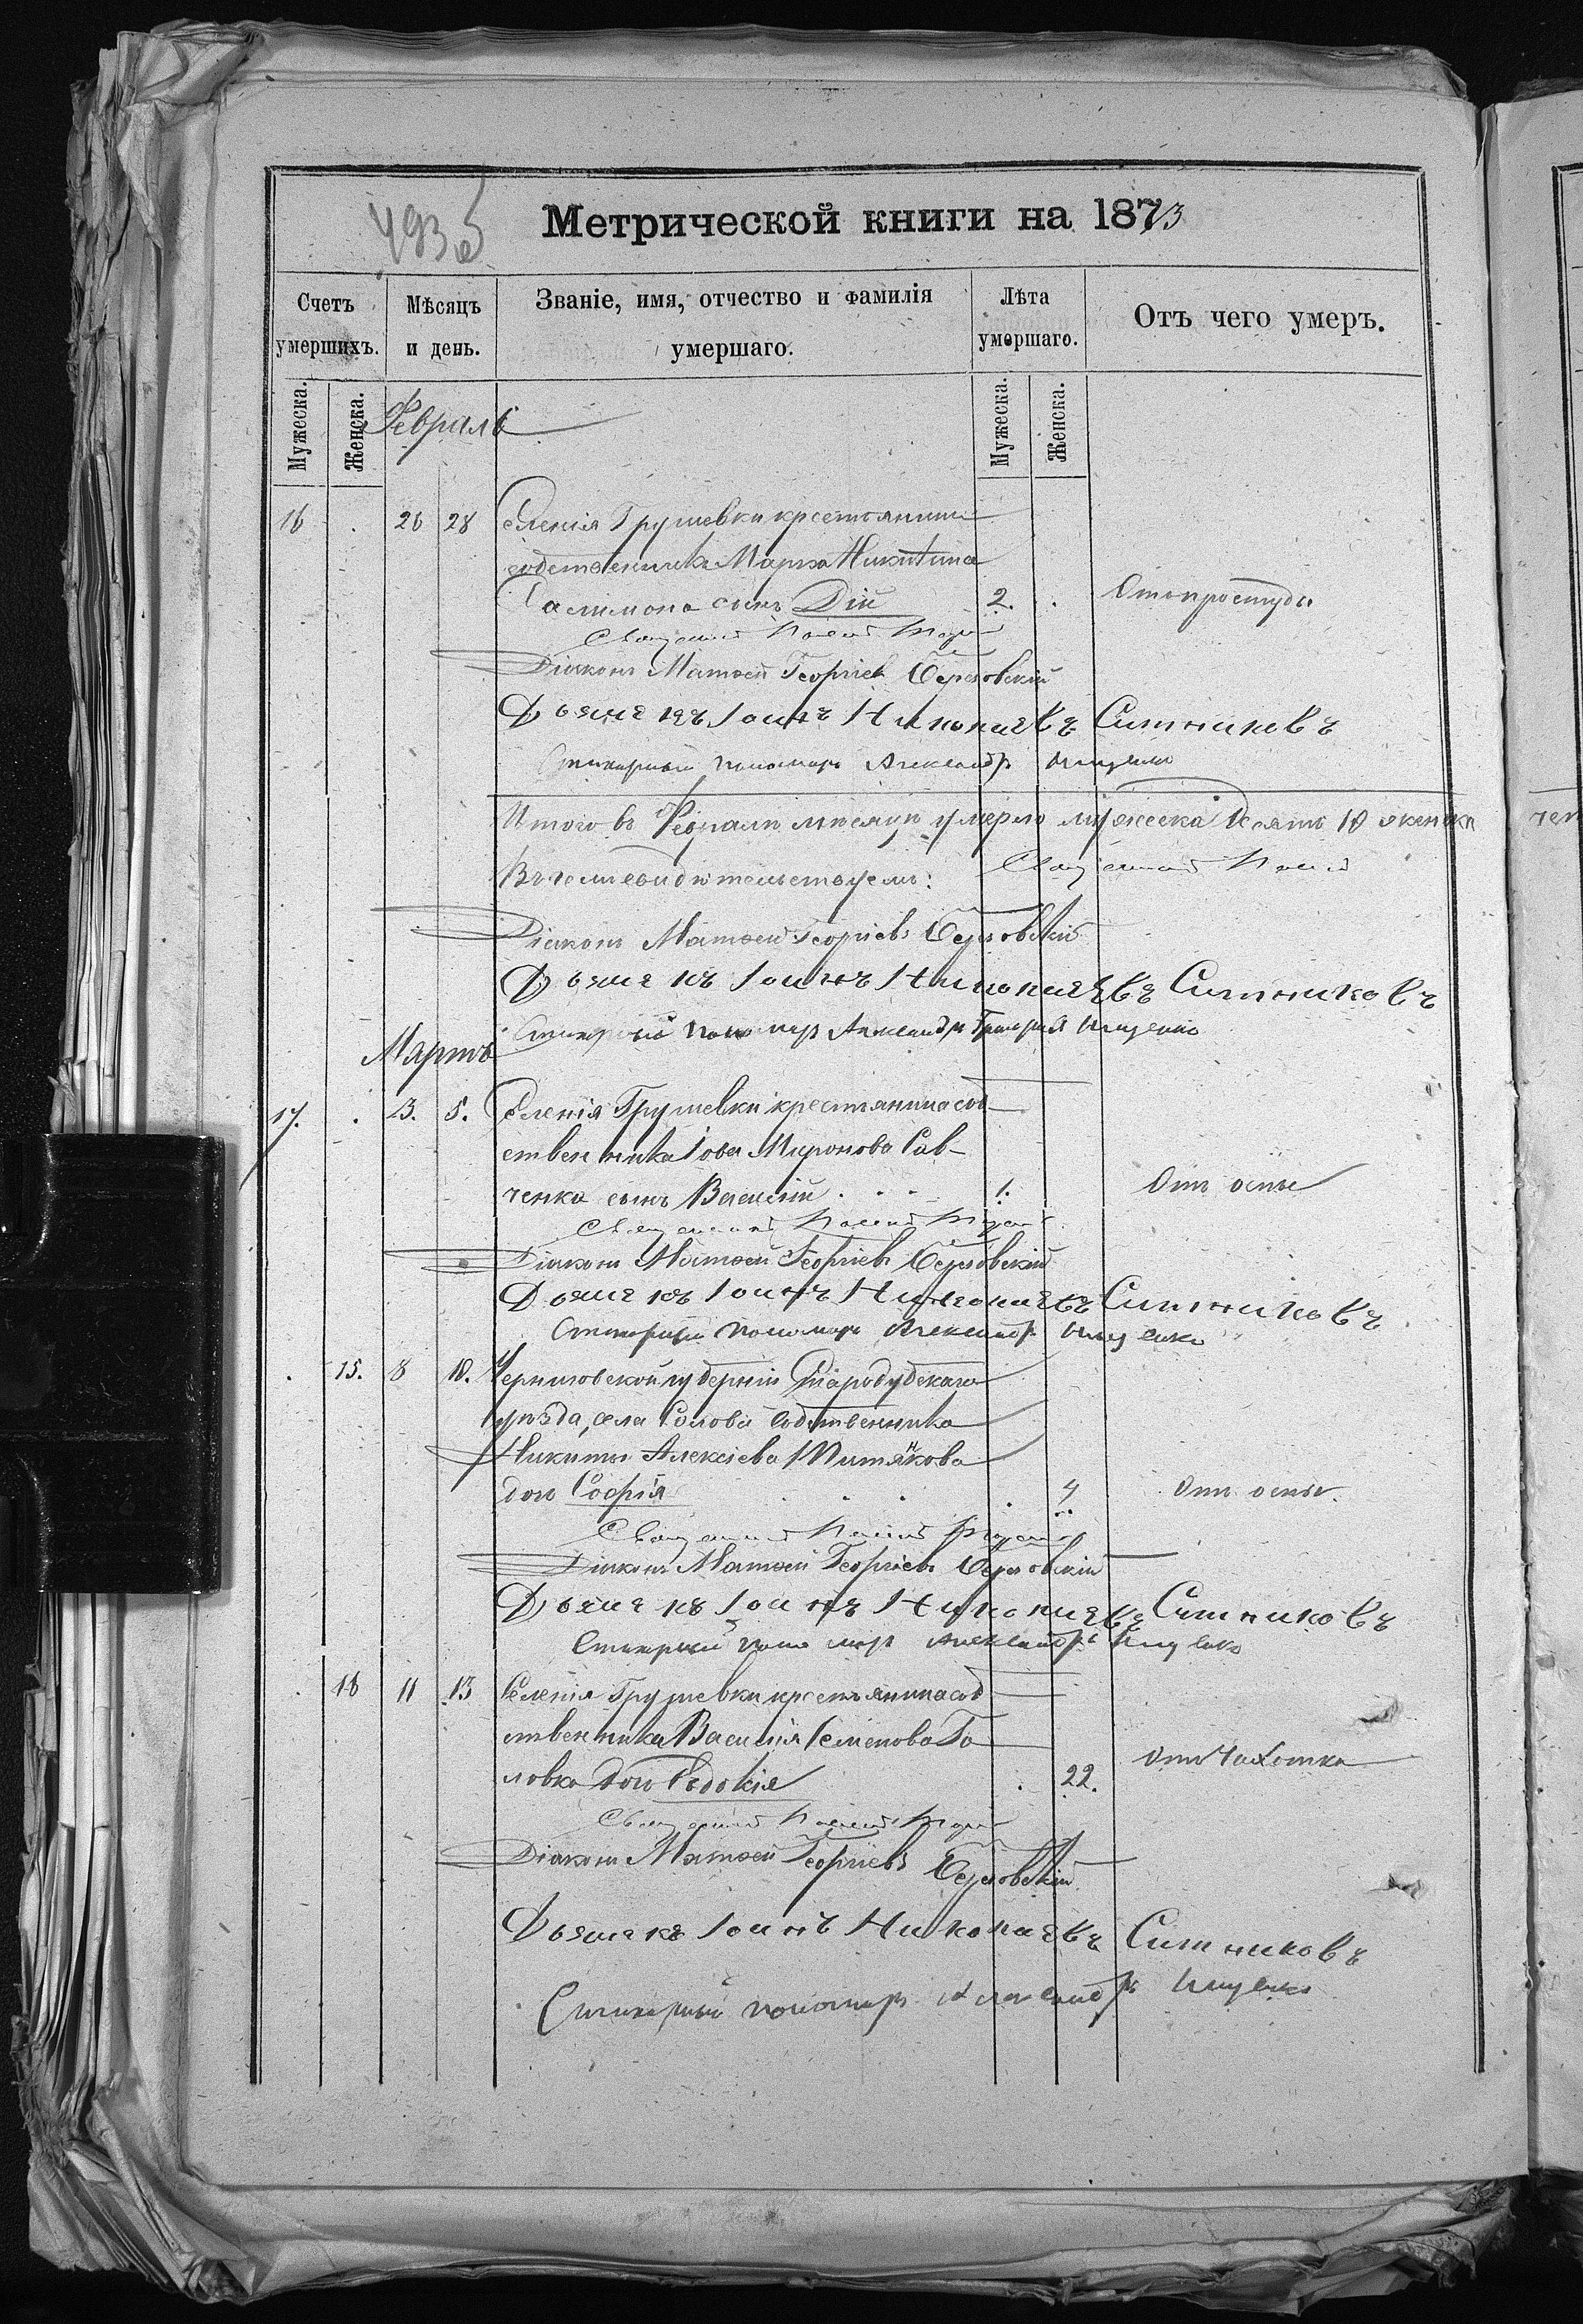 493 об
Метрической книги на 1873
Счетъ умершихъ.
Мѣсяцъ и день.
Званіе, имя, отчество и фамилія умершаго.
Лѣта умершаго.
Отъ чего умеръ.
Мужеска.
Женска.
Мужеска.
Женска.
Февраль
16 . 26 28 Селенія Грушевки крестьянина
собственника Марка Никитина
сынъ Дій 2. . Отъ простуды
Священникъ
Діаконъ Матѳей Георгіевъ Березовскій
Дьячекъ Іоаннъ Николаевъ Ситниковъ
Стихарный пономарь Александръ Ищенко
Итого въ Февралѣ мѣсяцѣ умерло мужеска десять 10 женска
Въ чемъ свидѣтельствуемъ: Священникъ
Діаконъ Матѳей Георгіевъ Березовскій
Дьячекъ Іоаннъ Николаевъ Ситниковъ
Стихарный пономарь Александръ Ищенко
Мартъ
17. . 3. 5. Селенія Грушевки крестьянина соб
ственника Іова Миронова Сав-
ченка сынъ Василій . . . 1. Отъ оспы
Священникъ
Діаконъ Матѳей Георгіевъ Березовскій
Дьячекъ Іоаннъ Николаевъ Ситниковъ
Стихарный пономарь Александръ Ищенко
. 15. 8 10. Черниговской губерніи Стародубскаго
уѣзда, села Солова собственника
Никиты Алексіева
дочь Софія . . . . 4 Отъ оспы.
Священникъ
Діаконъ Матѳей Георгіевъ Березовскій
Дьячекъ Іоаннъ Николаевъ Ситниковъ
Стихарный пономарь Александръ Ищенко
. 16 11 13 Селенія Грушевки крестьянина соб
ственника Василія Семенова Го
ловка дочь Евдокія . 22. Отъ чахотки
Священникъ
Діаконъ Матѳей Георгіевъ Березовскій
Дьячекъ Іоаннъ Николаевъ Ситниковъ
Стихарный пономарь Александръ Ищенко